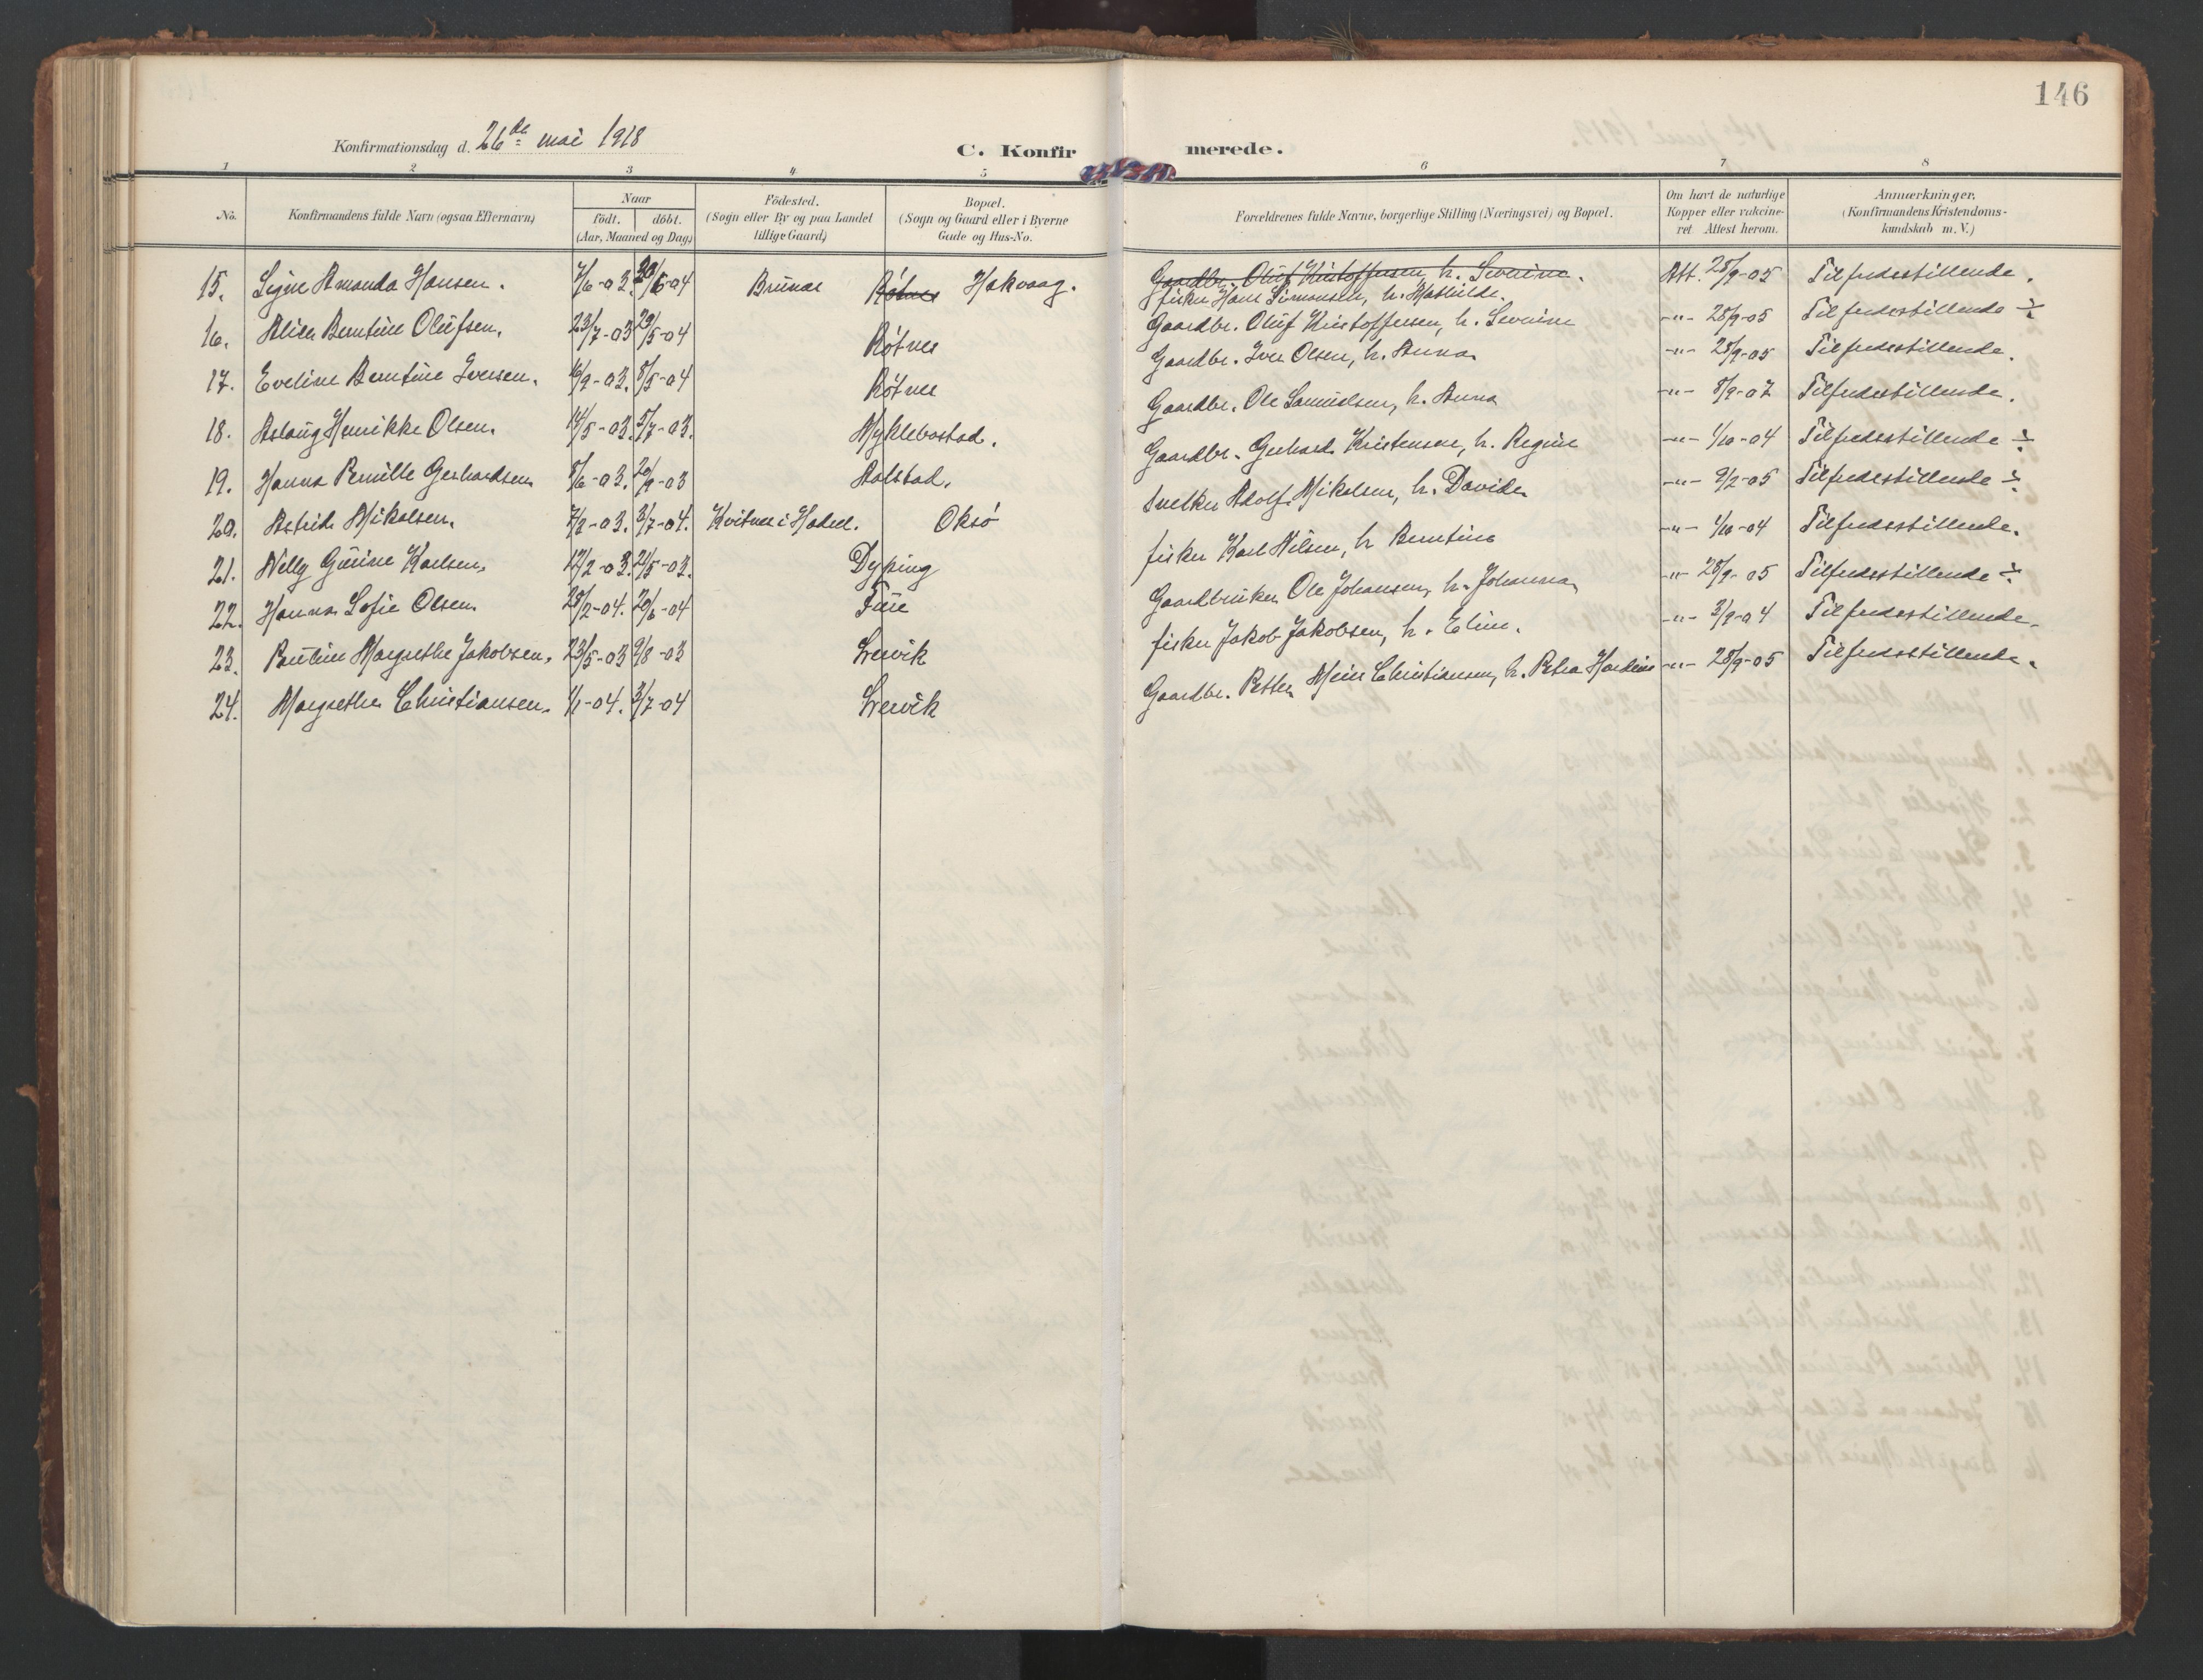 146
Konfirmationsdag d. 26de mai 1918
C. Konfir merede.
1 2 3 4 5 6 7 8
No.
Konfirmandens fulde Navn (ogsaa Efternavn)
Naar
født. döbt.
(Aar, Maaned og Dag)
Födested.
(Sogn eller By og paa Landet
tillige Gaard)
Bopæl.
(Sogn og Gaard eller i Byerne
Gade og Hus-No.
Forældrenes fulde Navne, borgerlige Stilling (Næringsvei) og Bopæl.
Om havt de naturlige
Kopper eller vakcine-
ret. Attest herom.
Anmærkninger.
(Konfirmandens Kristendoms-
kundskab m.V.)
Gaardbr. Oluf Kristoffersen, h. Severine.
15. Signe Amanda Hansen. 7/6-03. /6-04 Brunæs Røtnes Hakvaag. fisker Hans Simonsen, h. Mathilde. Att. 28/9-05 Tilfredsstillende.
16. Alida Berntine Olufsen. 23/7-03 29/5-04 Røtnes Gaardbr. Oluf Kristoffersen, h. Severine -"- 28/9-05 Tilfredsstillende ÷
17. Eveline Berntine Iversen. 16/9-03. 8/5-04 Røtnes Gaardbr. Iver Olsen, h. Anna -"- 28/9-05 Tilfredsstillende.
18. Aslaug Henrikke Olsen. 14/5-03. 5/7-03. Myklebostad. Gaardbr. Ole Samuelsen, h. Anna -"- 8/9-07 Tilfredsstillende.
19. Hanna Pernille Gerhardsen 8/6-03. 20/9-03 Aalstad. Gaardbr. Gerhard Kristensen, h. Regine -"- 4/10-04 Tilfredsstillende ÷
20. Astrid Mikalsen. 7/2-03. 3/7-04. Kvitnes i Hadsel. Oksø Snekker Adolf Mikalsen, h. Davida -"- 9/2-05 Tilfredsstillende ÷
21. Nelly Gurine Karlsen. 12/2-03. 21/5-03. Dyping fisker Karl Nilsen, h. Berntine -"- 4/10-04 Tilfredsstillende.
22. Hanna Sofie Olsen. 28/2-04. 20/6-04 Fure Gaardbruker Ole Johansen, h. Johanna -"- 28/9-05 Tilfredsstillende ÷
23. Pauline Margrethe Jakobsen. 23/5-03 9/8-03 Leervik fisker Jakob Jakobsen, h. Eline. -"- 3/9-04 Tilfredsstillende.
24. Margrethe Christiansen. 1/1-04. 3/7-04 Leervik Gaardbr. Petter Meier Christiansen, h. Petra Hardine -"- 28/9-05 Tilfredsstillende.